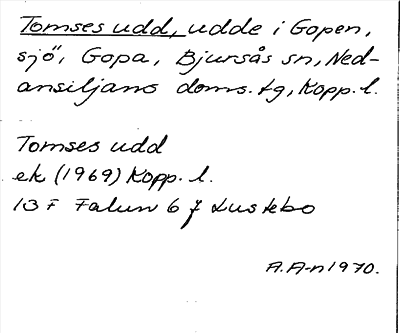 Tomses udd, udde i Gopen,
sjö", Gopa, Bjursås sn, Ned-
ansiljans doms. tg, Kopp. l.
Tomses udd
ek (1969) Kopp. l.
13 F Falun 6 f Lustebo
A.A-n 1970.